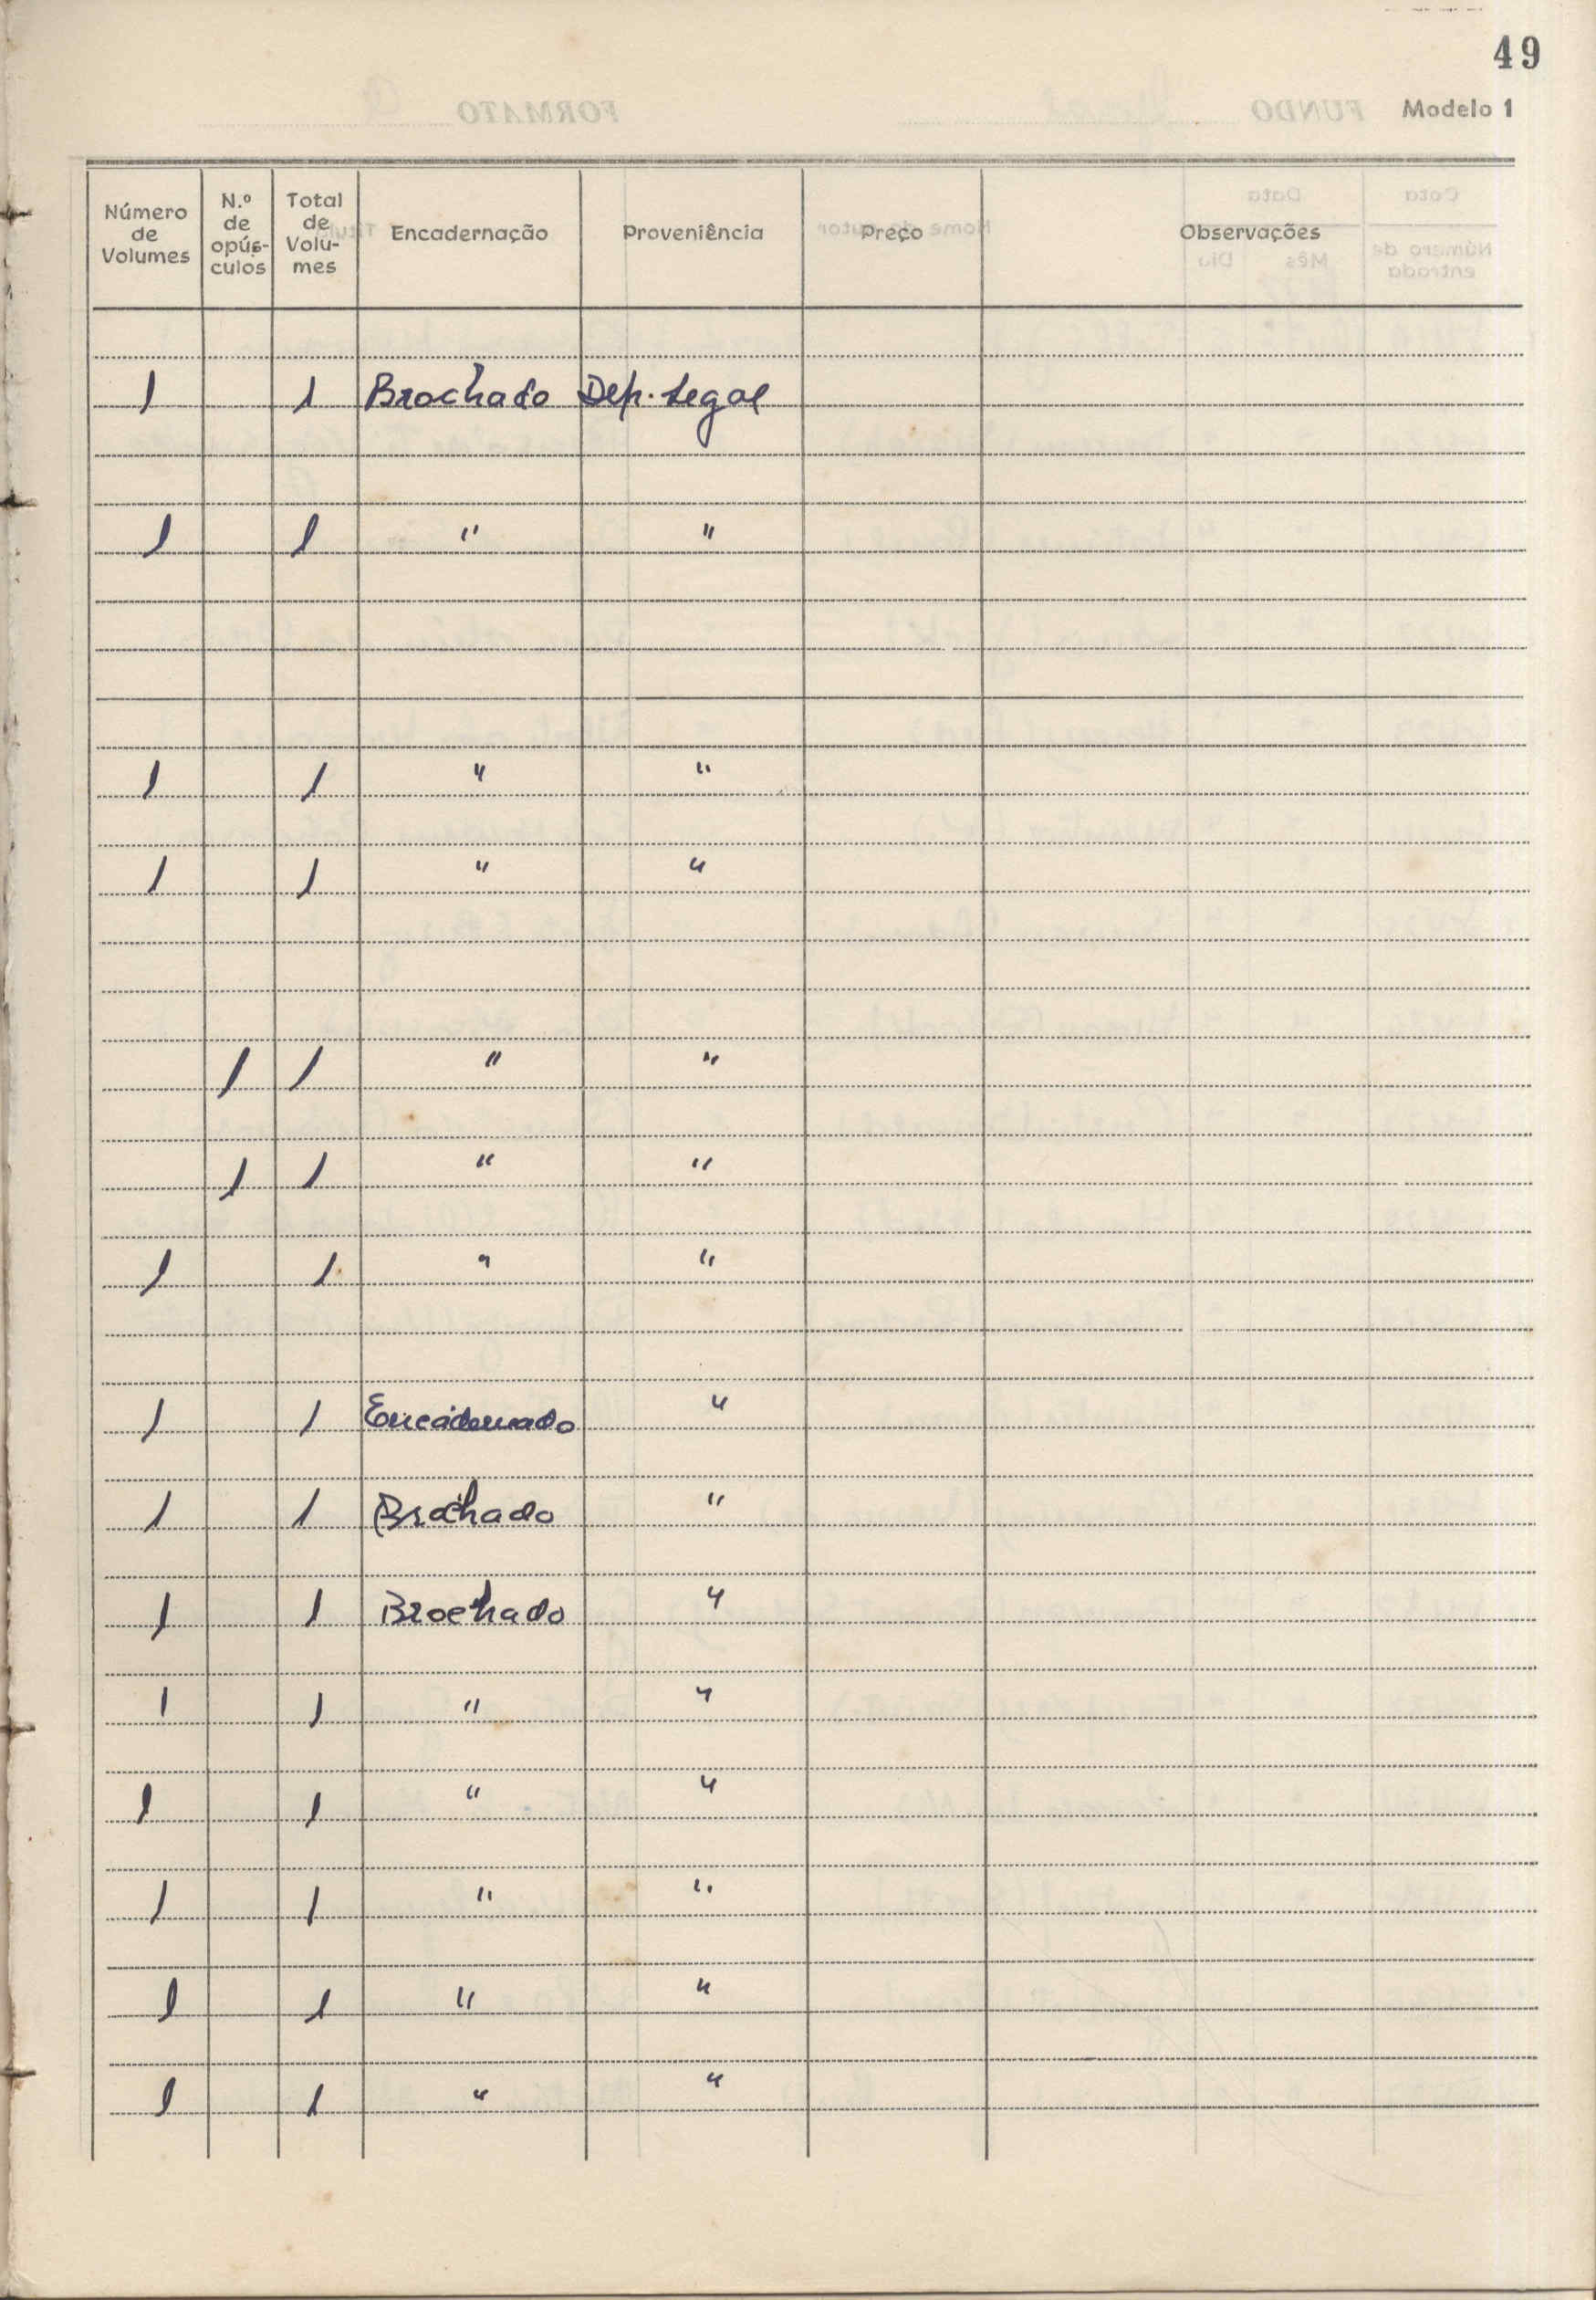 49
Modelo 1
Número de Volumes | N.º de opús-culos | Total de Volu-mes | Encadernação | Proveniência | Preço | Observações
1 | | 1 | Brochado | Dep. Legal
1 | | 1 | " | "
1 | | 1 | " | "
1 | | 1 | " | "
| 1 | 1 | " | "
| 1 | 1 | " | "
1 | | 1 | " | "
1 | | 1 | Encadernado | "
1 | | 1 | Brochado | "
1 | | 1 | Brochado | "
1 | | 1 | " | "
1 | | 1 | " | "
1 | | 1 | " | "
1 | | 1 | " | "
1 | | 1 | " | "